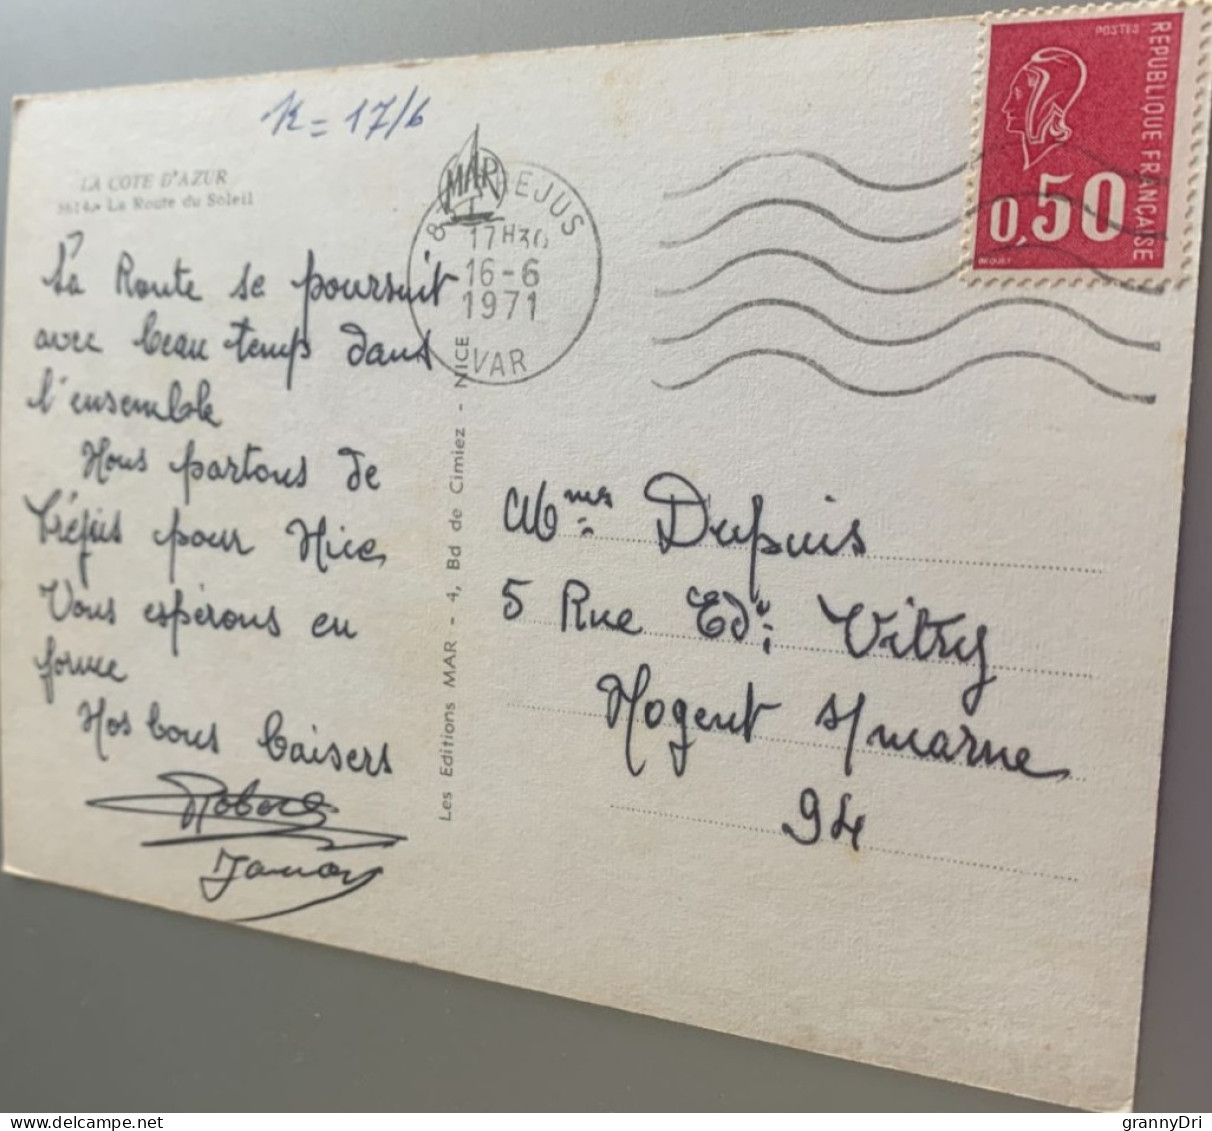 R = 17/6
LA COTE D'AZUR
La Route du Soleil
La Route se poursuit
avec beau temp dans
l'ensemble
Nous partons de
Fréjus pour Nice
Vous espérons en
forme
Nos bons baisers
Robert
MAR
EJUS
17H30
16-6
1971
VAR
Les Editions MAR - 4, Bd de Cimiez - NICE
POSTES
REPUBLIQUE FRANÇAISE
0,50
BEQUET
Mmes Dupuis
5 Rue Ed. Vitry
Nogent s/marne
94
grannyDri